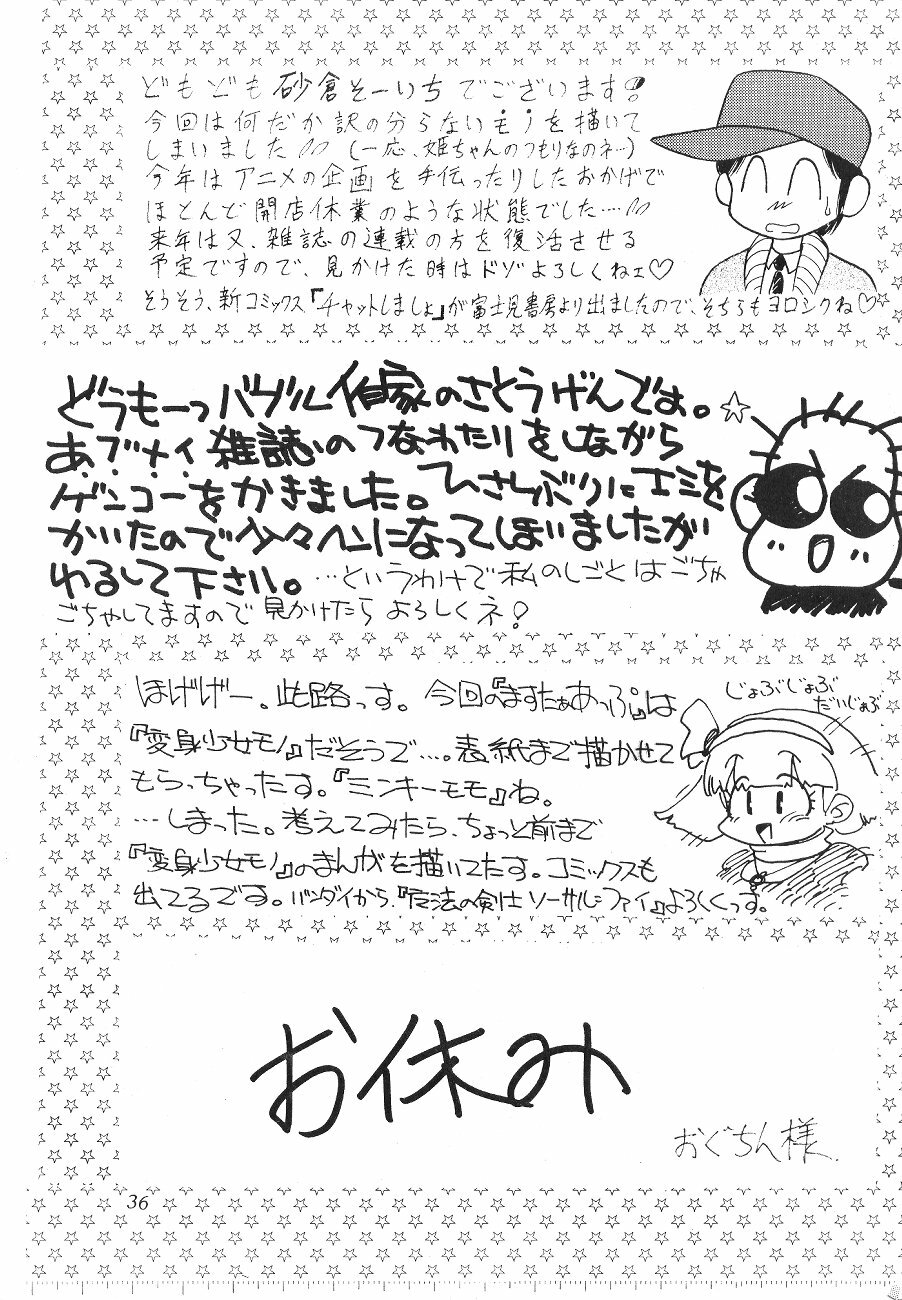 どもども砂倉そーいちでございます!
今回は何だか訳の分らないモノを描いて
しまいました (一応、姫ちゃんのつもりなのネ…)
今年はアニメの企画を手伝ったりしたおかげで
ほとんど開店休業のような状態でした…
来年は又、雑誌の連載の方を復活させる
予定ですので、見かけた時はドゾよろしくねェ♡
そうそう、新コミックス『チャットしましょ』が富士見書房より出ましたので、そちらもヨロシクね♡
どうもーっバブル作家のさとうげんです。☆
あ・ブ・ナ・イ雑誌のつなわたりをしながら
ゲンコーをかきました。ひさしぶりにエミを
かいたので少々ヘンになってしまいましたが
わるして下さい。…というわけで私のしごとはごちゃ
ごちゃしてますので見かけたらよろしくネ!
ほげげー。此路っす。今回の『ますたぁあっぷ』は
『変身少女モノ』だそうで…。表紙まで描かせて
もらっちゃったす。『ミンキーモモ』ね。
…しまった。考えてみたら、ちょっと前まで
『変身少女モノ』のまんがを描いてたす。コミックスも
出てるです。バンダイから『魔法の剣士ソーサル=ファイ』よろくくっす。
じょぶじょぶ
だいじょぶ
お休み
おぐちん様
36